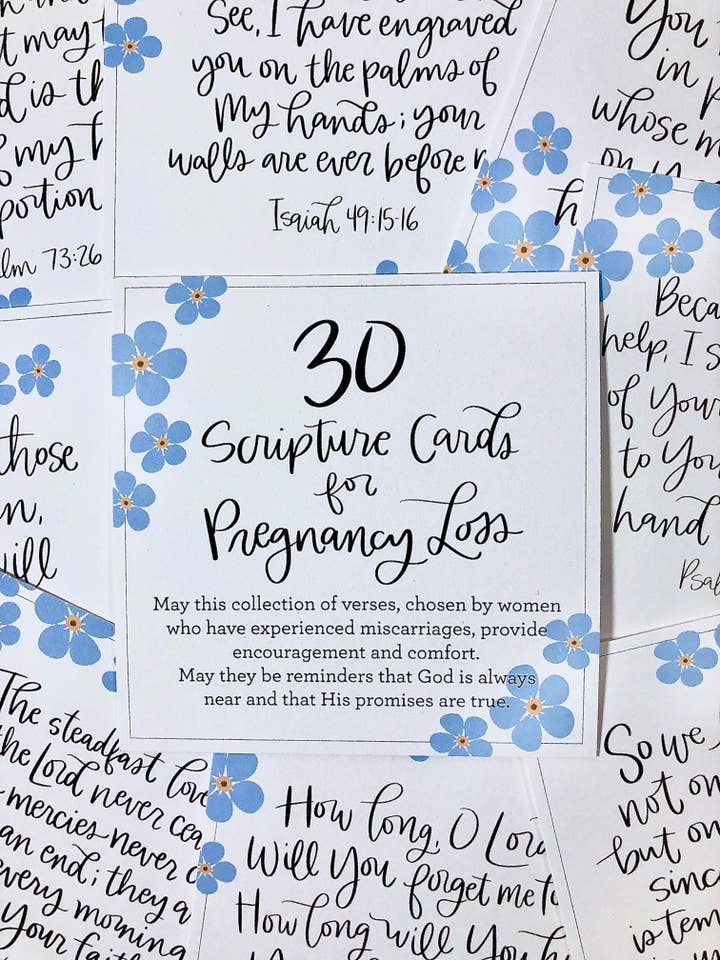 t may
d is th
my
portion
lm 73:26
See, I have engraved
you on the palms of
My hands; your
walls are ever before
Isaiah 49:15-16
You
in
whose
on
Beca
help, I s
of Your
to You
hand
Psal
those
n,
will
30
Scripture Cards
for
Pregnancy Loss
May this collection of verses, chosen by women
who have experienced miscarriages, provide
encouragement and comfort.
May they be reminders that God is always
near and that His promises are true.
The steadfast love
the Lord never cea
mercies never c
an end; they a
every morning
Your faith
How long, O Lord
Will You forget me
How long will You h
So we
not on
but on
sinc
is tem